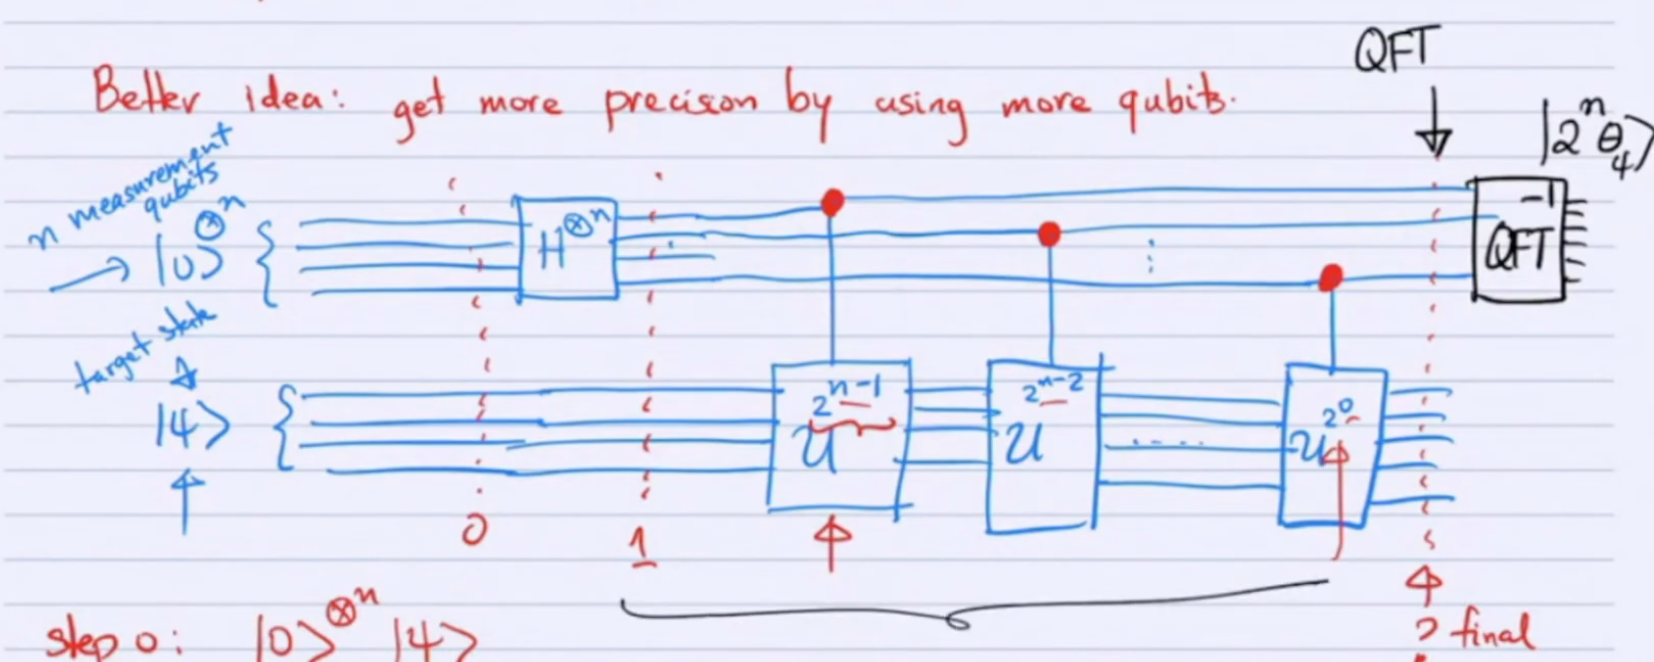 QFT
Better idea: get more precision by using more qubits.
|2ⁿθ₄⟩
n measurement qubits
|0⟩^⊗n
H^⊗n
QFT⁻¹
target state
|ψ⟩
U^2^n-1
U^2^n-2
U^2^0
0
1
? final
step 0: |0⟩^⊗n |ψ⟩